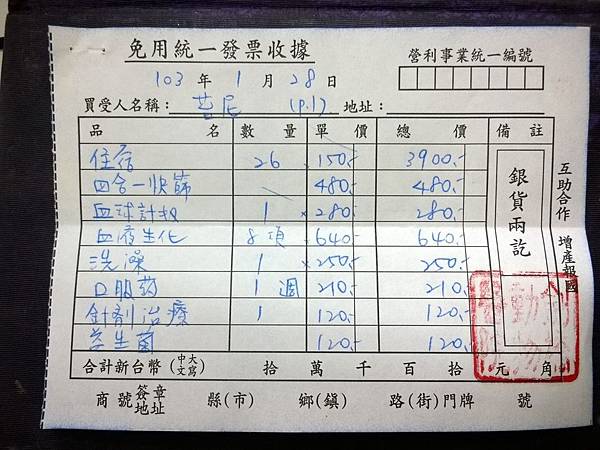 免用統一發票收據
營利事業統一編號
103 年 1 月 28 日
買受人名稱： 苦尼 (p.1) 地址：
品 名 數 量 單 價 總 價 備 註
住宿 26 150.- 3900.-
四合一快篩 480.- 480.-
血球計數 1 ×280.- 280.-
血液生化 8項 ×640.- 640.-
洗澡 1 ×250.- 250.-
口服药 1 週 210.- 210.-
針劑治療 1 120.- 120.-
120.- 120.-
銀貨兩訖
互助合作 增產報國
合計新台幣(中文大寫) 拾 萬 千 百 拾 元 角
商號簽章地址 縣(市) 鄉(鎮) 路(街)門牌 號